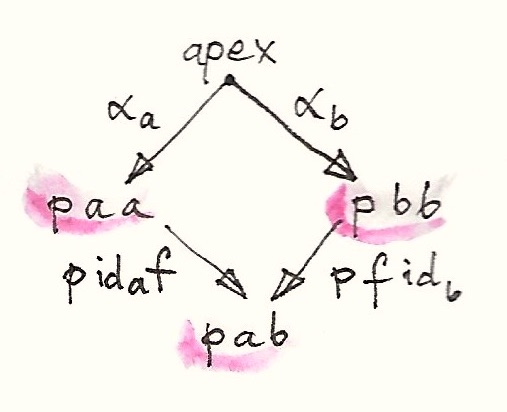 apex
αa αb
paa pbb
pidaf pfidb
pab